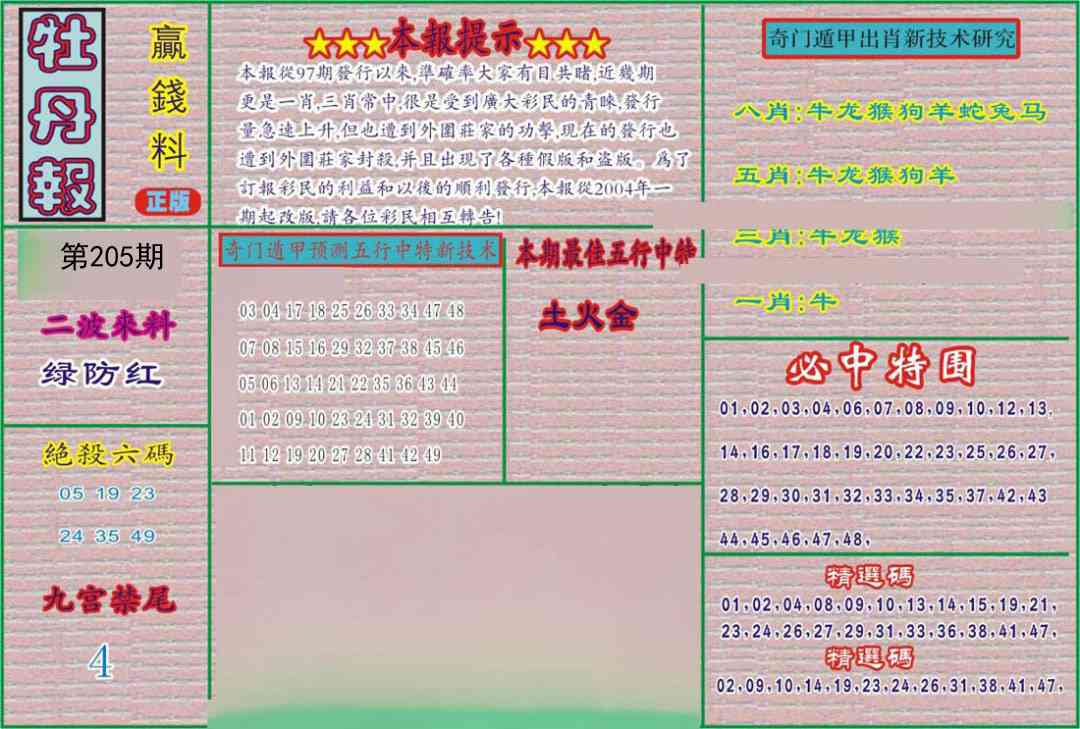 牡丹報
贏錢料
正版
★★★本報提示★★★
本報從97期發行以來,準確率大家有目共睹,近幾期
更是一肖,三肖常中,很是受到廣大彩民的青睞,發行
量急速上升,但也遭到外圍莊家的功擊,現在的發行也
遭到外圍莊家封殺,并且出現了各種假版和盜版。爲了
訂報彩民的利益和以後的順利發行,本報從2004年一
期起改版,請各位彩民相互轉告!
奇门遁甲出肖新技术研究
八肖:牛龙猴狗羊蛇兔马
五肖:牛龙猴狗羊
三肖:牛龙猴
一肖:牛
第205期
二波來料
绿防红
絕殺六碼
05 19 23
24 35 49
九宫禁尾
4
奇门遁甲预测五行中特新技术
03 04 17 18 25 26 33 34 47 48
07 08 15 16 29 32 37 38 45 46
05 06 13 14 21 22 35 36 43 44
01 02 09 10 23 24 31 32 39 40
11 12 19 20 27 28 41 42 49
本期最佳五行中特
土火金
必中特围
01,02,03,04,06,07,08,09,10,12,13,
14,16,17,18,19,20,22,23,25,26,27,
28,29,30,31,32,33,34,35,37,42,43
44,45,46,47,48,
精選碼
01,02,04,08,09,10,13,14,15,19,21,
23,24,26,27,29,31,33,36,38,41,47,
精選碼
02,09,10,14,19,23,24,26,31,38,41,47,